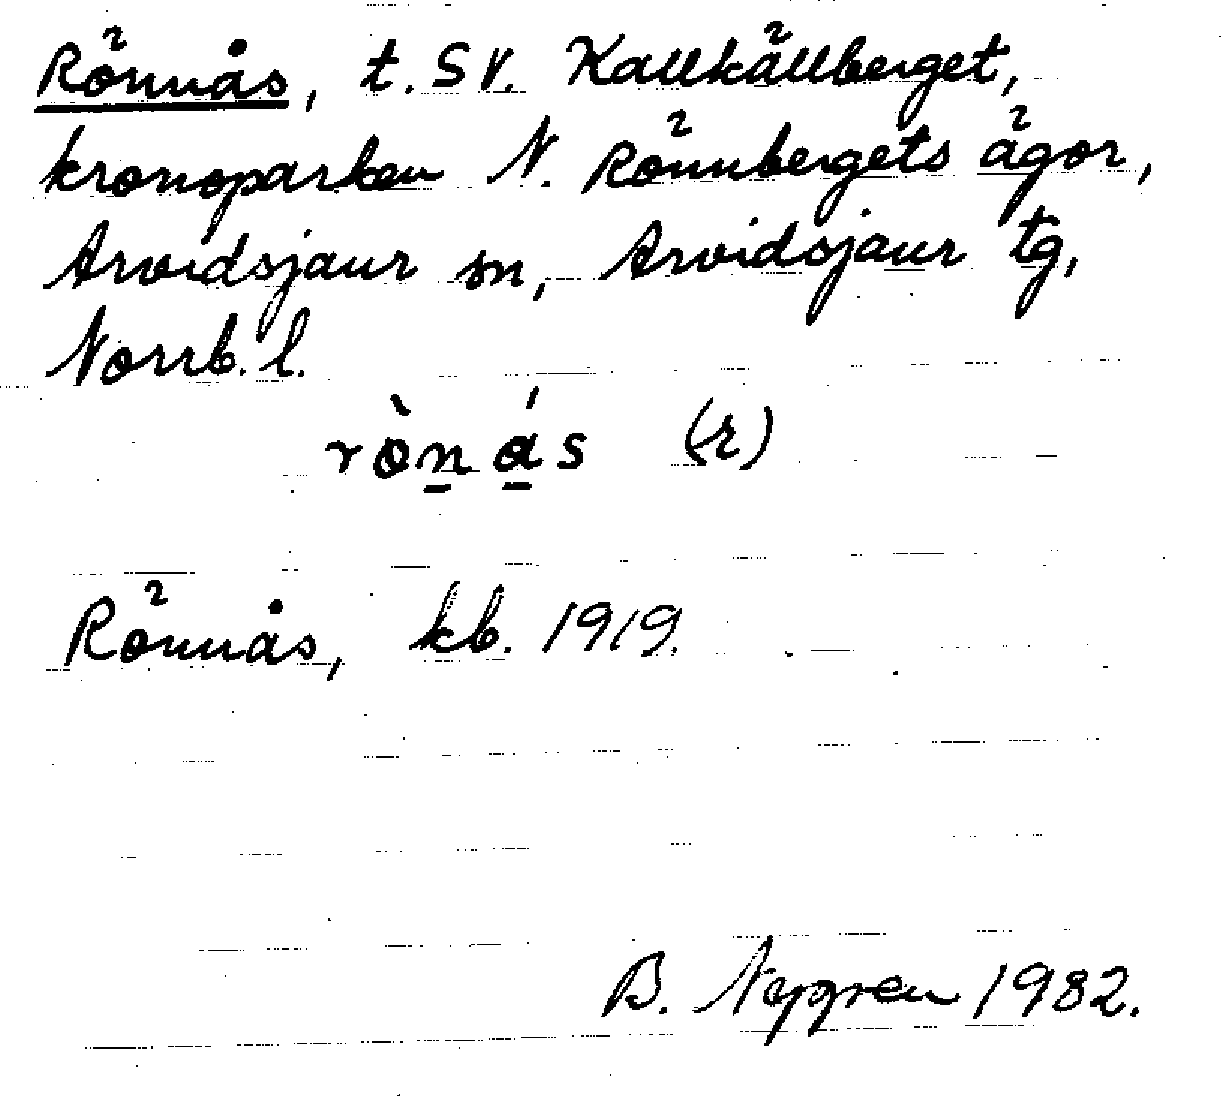 Rönnås, t. SV. Kallkällberget,
kronoparken N. Rönnbergets ägor,
Arvidsjaur sn, Arvidsjaur tg,
Norrb. l.
rònás (r)
Rönnås, kb. 1919.
B. Nygren 1982.